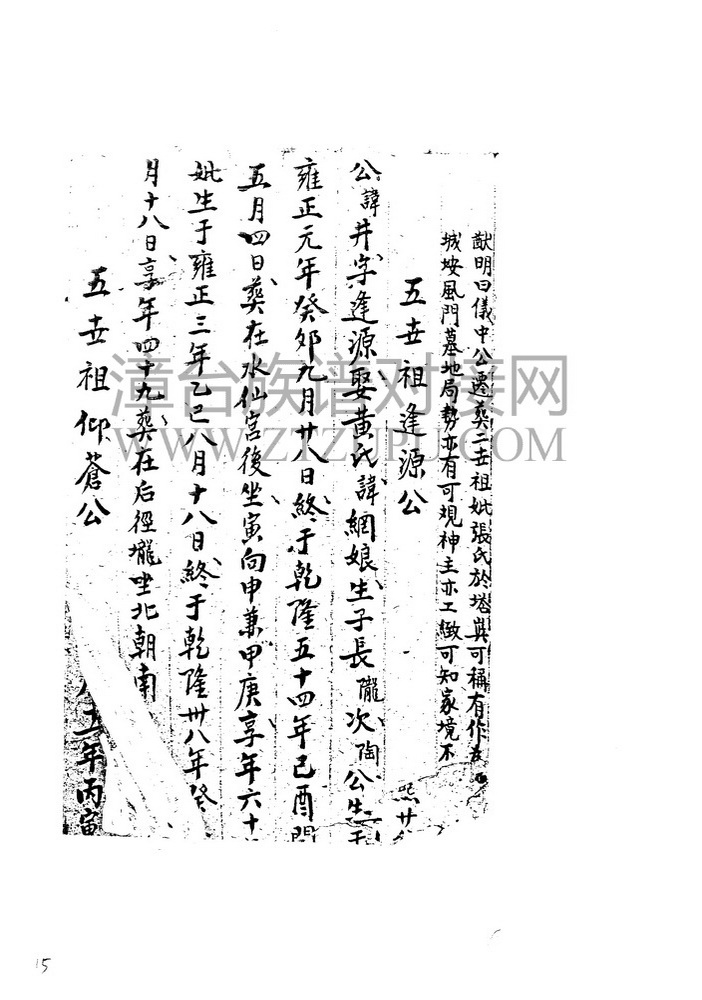 猷明曰儀中公遷葬二世祖妣張氏於塔真可稱有作
城垵風門墓地局勢亦有可規神主亦工緻可知家境不
五世祖逢源公
公諱井字逢源娶黃氏諱網娘生子長隴次陶公生于
雍正元年癸卯九月廿八日終于乾隆五十四年己酉閏
五月四日葬在水仙宮後坐寅向申兼甲庚享年六十
妣生于雍正三年乙巳八月十八日終于乾隆卅八年癸
月十八日享年四十九葬在后徑壠坐北朝南
五世祖仰蒼公
二年丙寅
漳台族谱对接网
WWW.ZTZUPU.COM
15